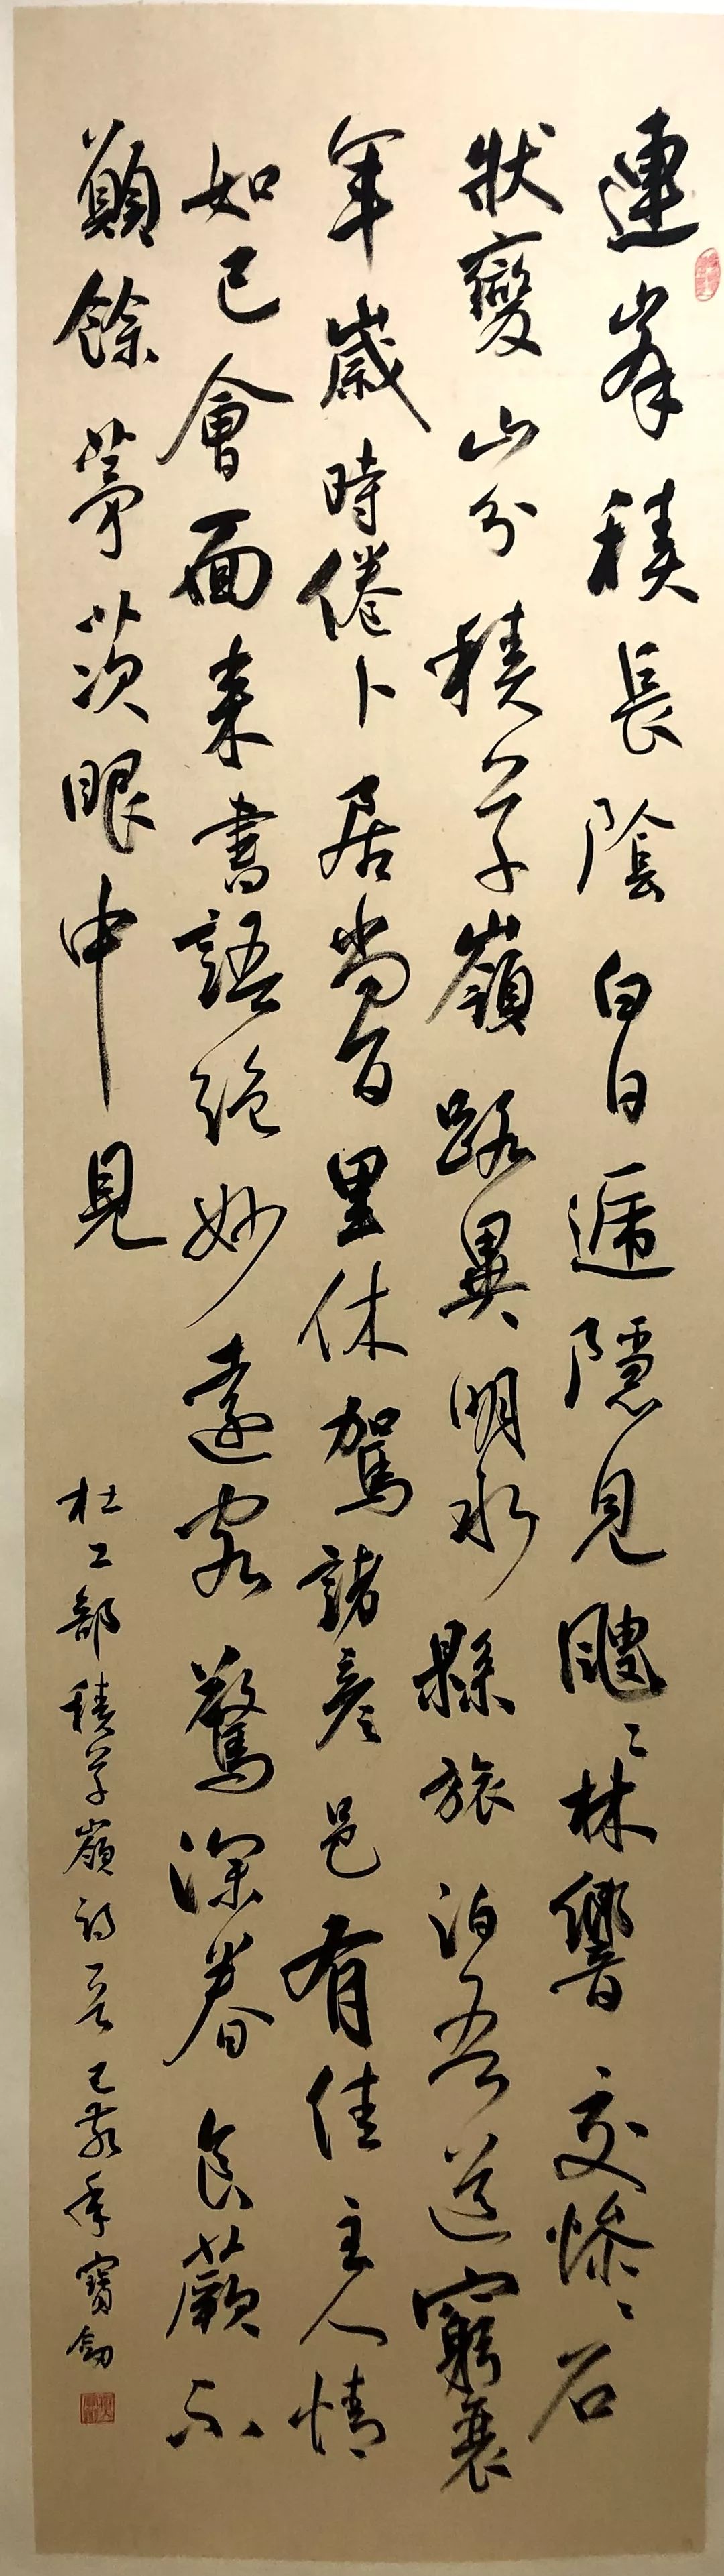 連峯積長陰白日遞隱見颼〻林響交慘〻石
狀變山分積草嶺路異明水縣旅泊吾道窮衰
年歲時倦卜居尚百里休駕諸彥邑有佳主人情
如已會面來書語絕妙遠客驚深眷食蕨不
願餘茅茨眼中見
杜工部積草嶺詩一首己亥年寶劒